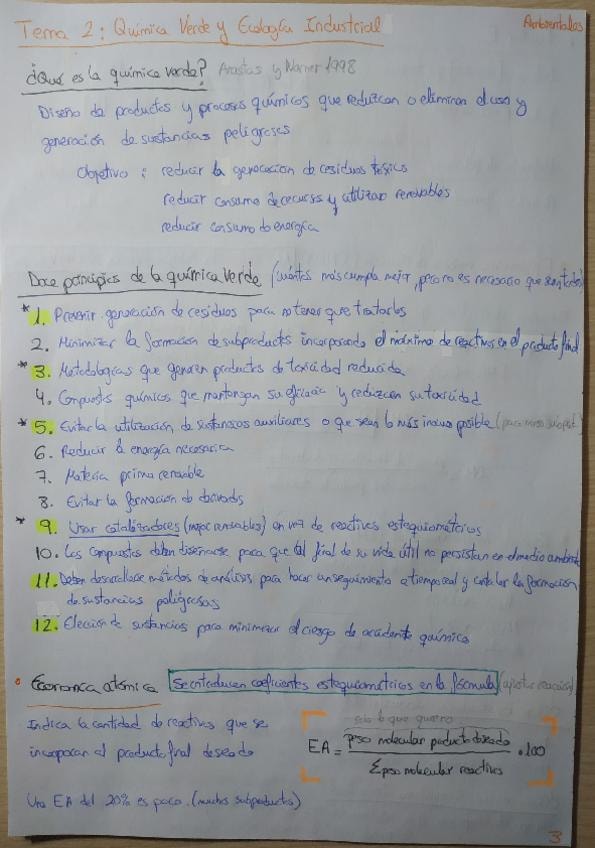 Tema 2: Química Verde y Ecología Industrial
Ambientales
¿Qué es la química verde? Anastas y Warner 1998
Diseño de productos y procesos químicos que reduzcan o eliminen el uso y
generación de sustancias peligrosas
Objetivo: reducir la generación de residuos tóxicos
reducir consumo de recursos y utilizar renovables
reducir consumo de energía
Doce principios de la química verde (cuántos más cumpla mejor, pero no es necesario que sean todos)
* 1. Prevenir generación de residuos para no tener que tratarlos
2. Minimizar la formación de subproductos incorporando el máximo de reactivos en el producto final
* 3. Metodologías que generen productos de toxicidad reducida
4. Compuestos químicos que mantengan su eficacia y reduzcan su toxicidad
* 5. Evitar la utilización de sustancias auxiliares o que sean lo más inocuo posible (para menos subprod.)
6. Reducir la energía necesaria
7. Materia prima renovable
8. Evitar la formación de derivados
* 9. Usar catalizadores (mejor renovables) en vez de reactivos estequiométricos
10. Los compuestos deben diseñarse para que al final de su vida útil no persistan en el medio ambiente
11. Deben desarrollarse métodos de análisis para hacer un seguimiento a tiempo real y controlar la formación
de sustancias peligrosas
12. Elección de sustancias para minimizar el riesgo de accidente químico
Economía atómica Se introducen coeficientes estequiométricos en la fórmula (ajustar reacción)
Indica la cantidad de reactivos que se
incorporan al producto final deseado
solo lo que quiero
EA = peso molecular producto deseado / Σ peso molecular reactivos · 100
Una EA del 20% es poco. (muchos subproductos)
3